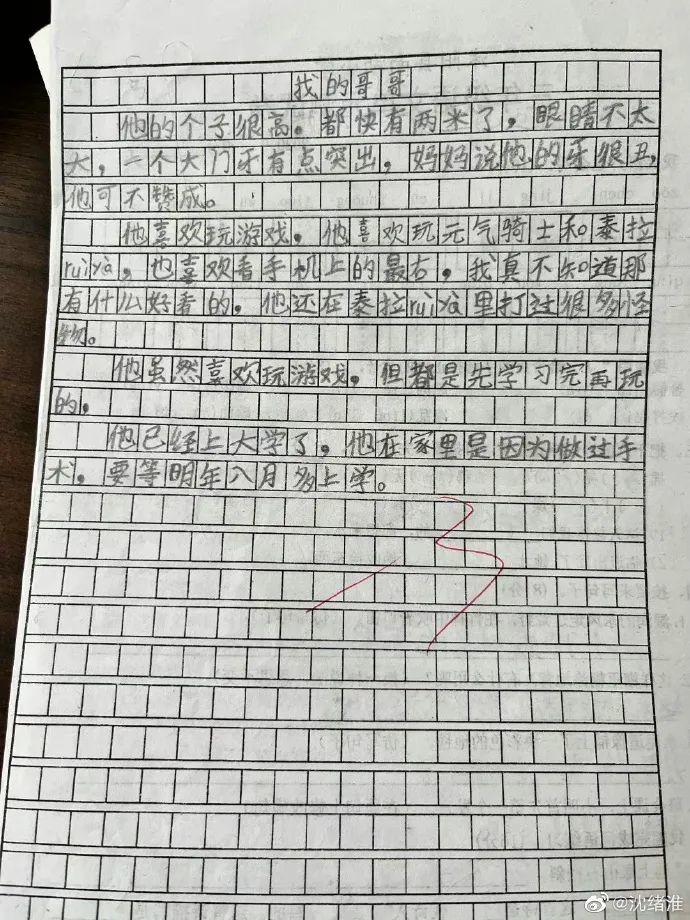 我的哥哥
他的个子很高。都快有两米了，眼睛不太
大，一个大门牙有点突出，妈妈说他的牙很丑，
他可不赞成。
他喜欢玩游戏，他喜欢玩元气骑士和泰拉
ruìyà，也喜欢看手机上的最右，我真不知道那
有什么好看的，他还在泰拉ruìyà里打过很多怪
物。
他虽然喜欢玩游戏，但都是先学习完再玩
的，
他已经上大学了，他在家里是因为做过手
术，要等明年八月多上学。
-3
@沈绪淮